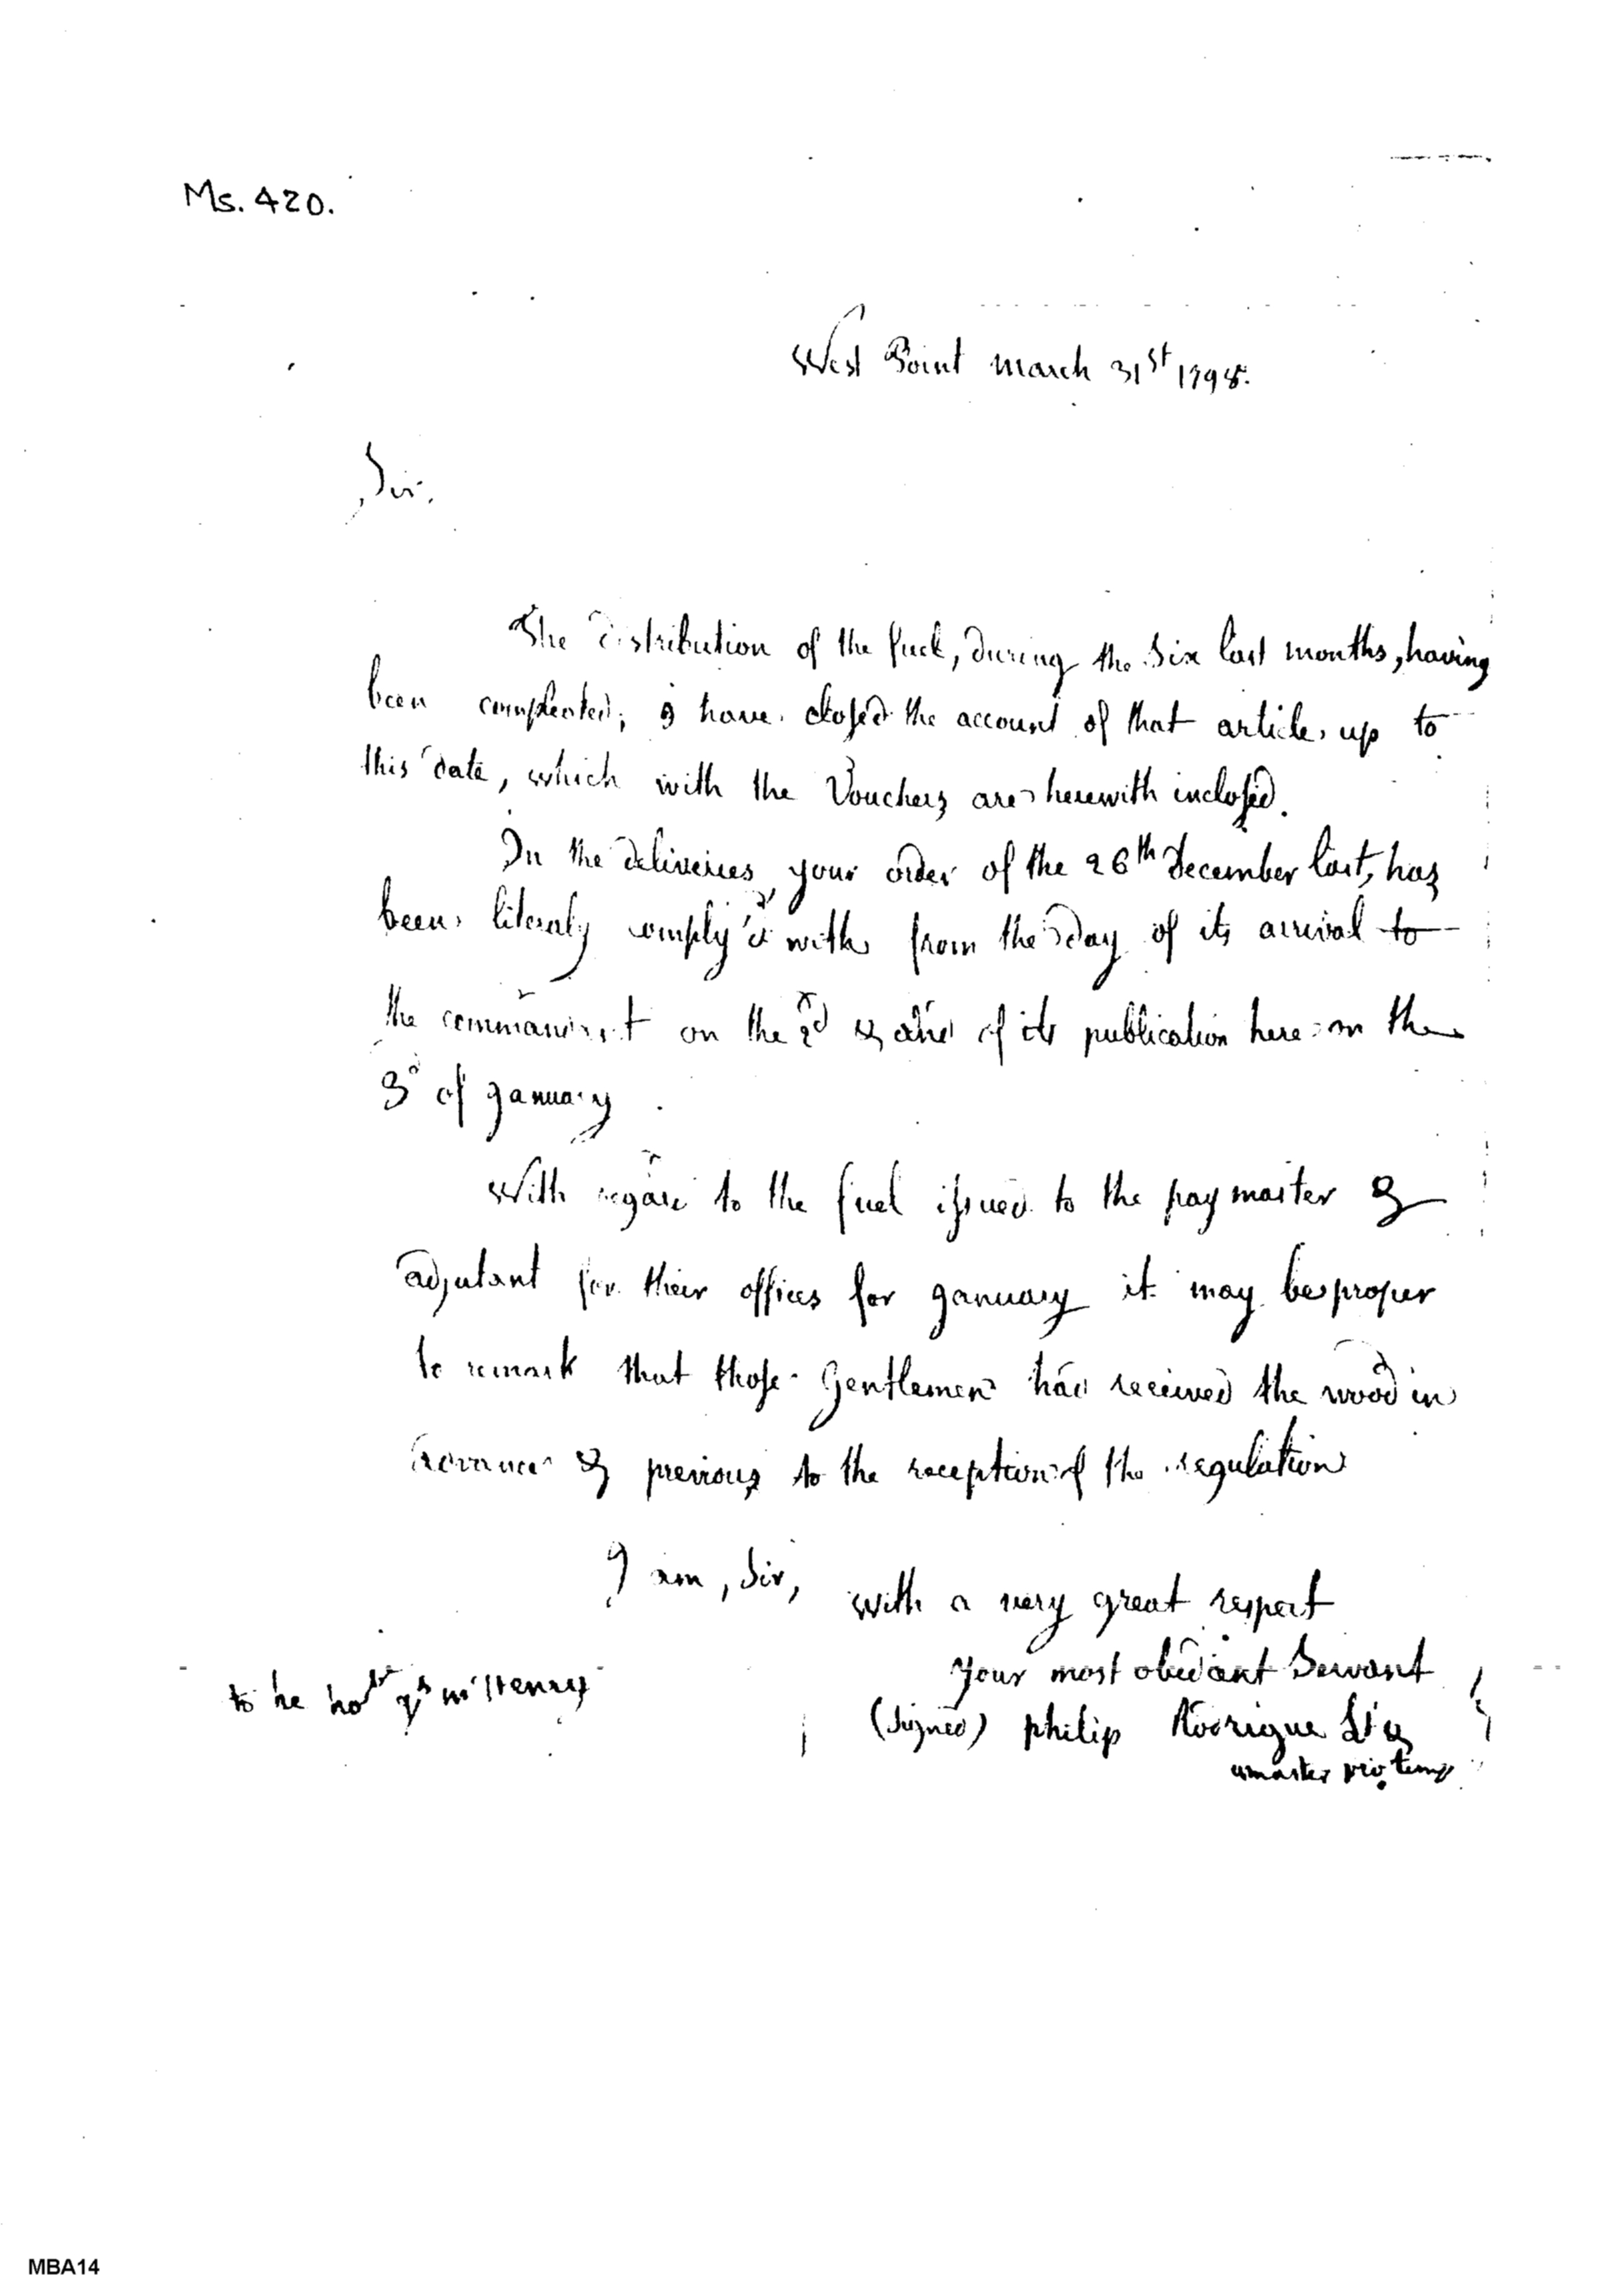 Ms. 420.
West Point march 31st 1798.
Sir.
The distribution of the fuel, during the six last months, having
been compleated; I have closed the account of that article up to
this date, which with the Vouchers are herewith inclosed.
In the deliveries, your order of the 26th december last, has
been literaly comply'd with from the day of its arrival to
the commandant on the 2d & of its publication here on the
3d of january
With regard to the fuel issued to the paymaster &
adjutant for their offices for january it may be proper
to remark that those Gentlemen had received the wood in
advance & previous to the reception of the regulation
I am, Sir, with a very great respect
your most obediant Servant
(signed) philip Rodrigue Lt &
to he hoble js mcHenry
qmaster pro temp
MBA14